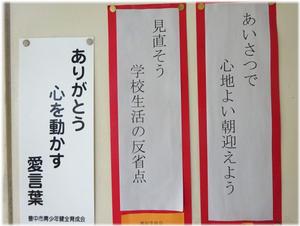 あいさつで
心地よい朝迎えよう
見直そう
学校生活の反省点
ありがとう
心を動かす
愛言葉
豊中市青少年健全育成会